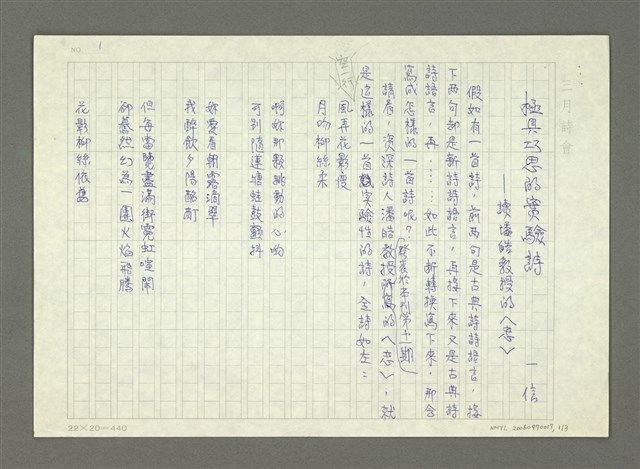 NO. 1
三月詩會
極具巧思的實驗詩
—讀潘皓教授的〈戀〉
一信
假如有一首詩,前兩句是古典詩詩語言,接
下兩句卻是新詩詩語言,再接下來又是古典詩
詩語言,再……如此不斷轉換寫下來,那會
寫成怎樣的一首詩呢?
請看,資深詩人潘皓教授所寫的〈戀〉,就
(發表於本刊第十一期)
是這樣的一首實驗性的詩,全詩如左:
空一行
風弄花影瘦
月吻柳絲柔
啊妳那顆跳動的心喲
可別隨蓮塘蛙鼓顫抖
妳愛看朝露滴翠
我醉飲夕陽酩酊
但每當覽盡滿街霓虹喧鬧
卻驀然幻為一團火焰飛騰
花影柳絲依舊
22×20=440
NMTL 20060490017, 1/3